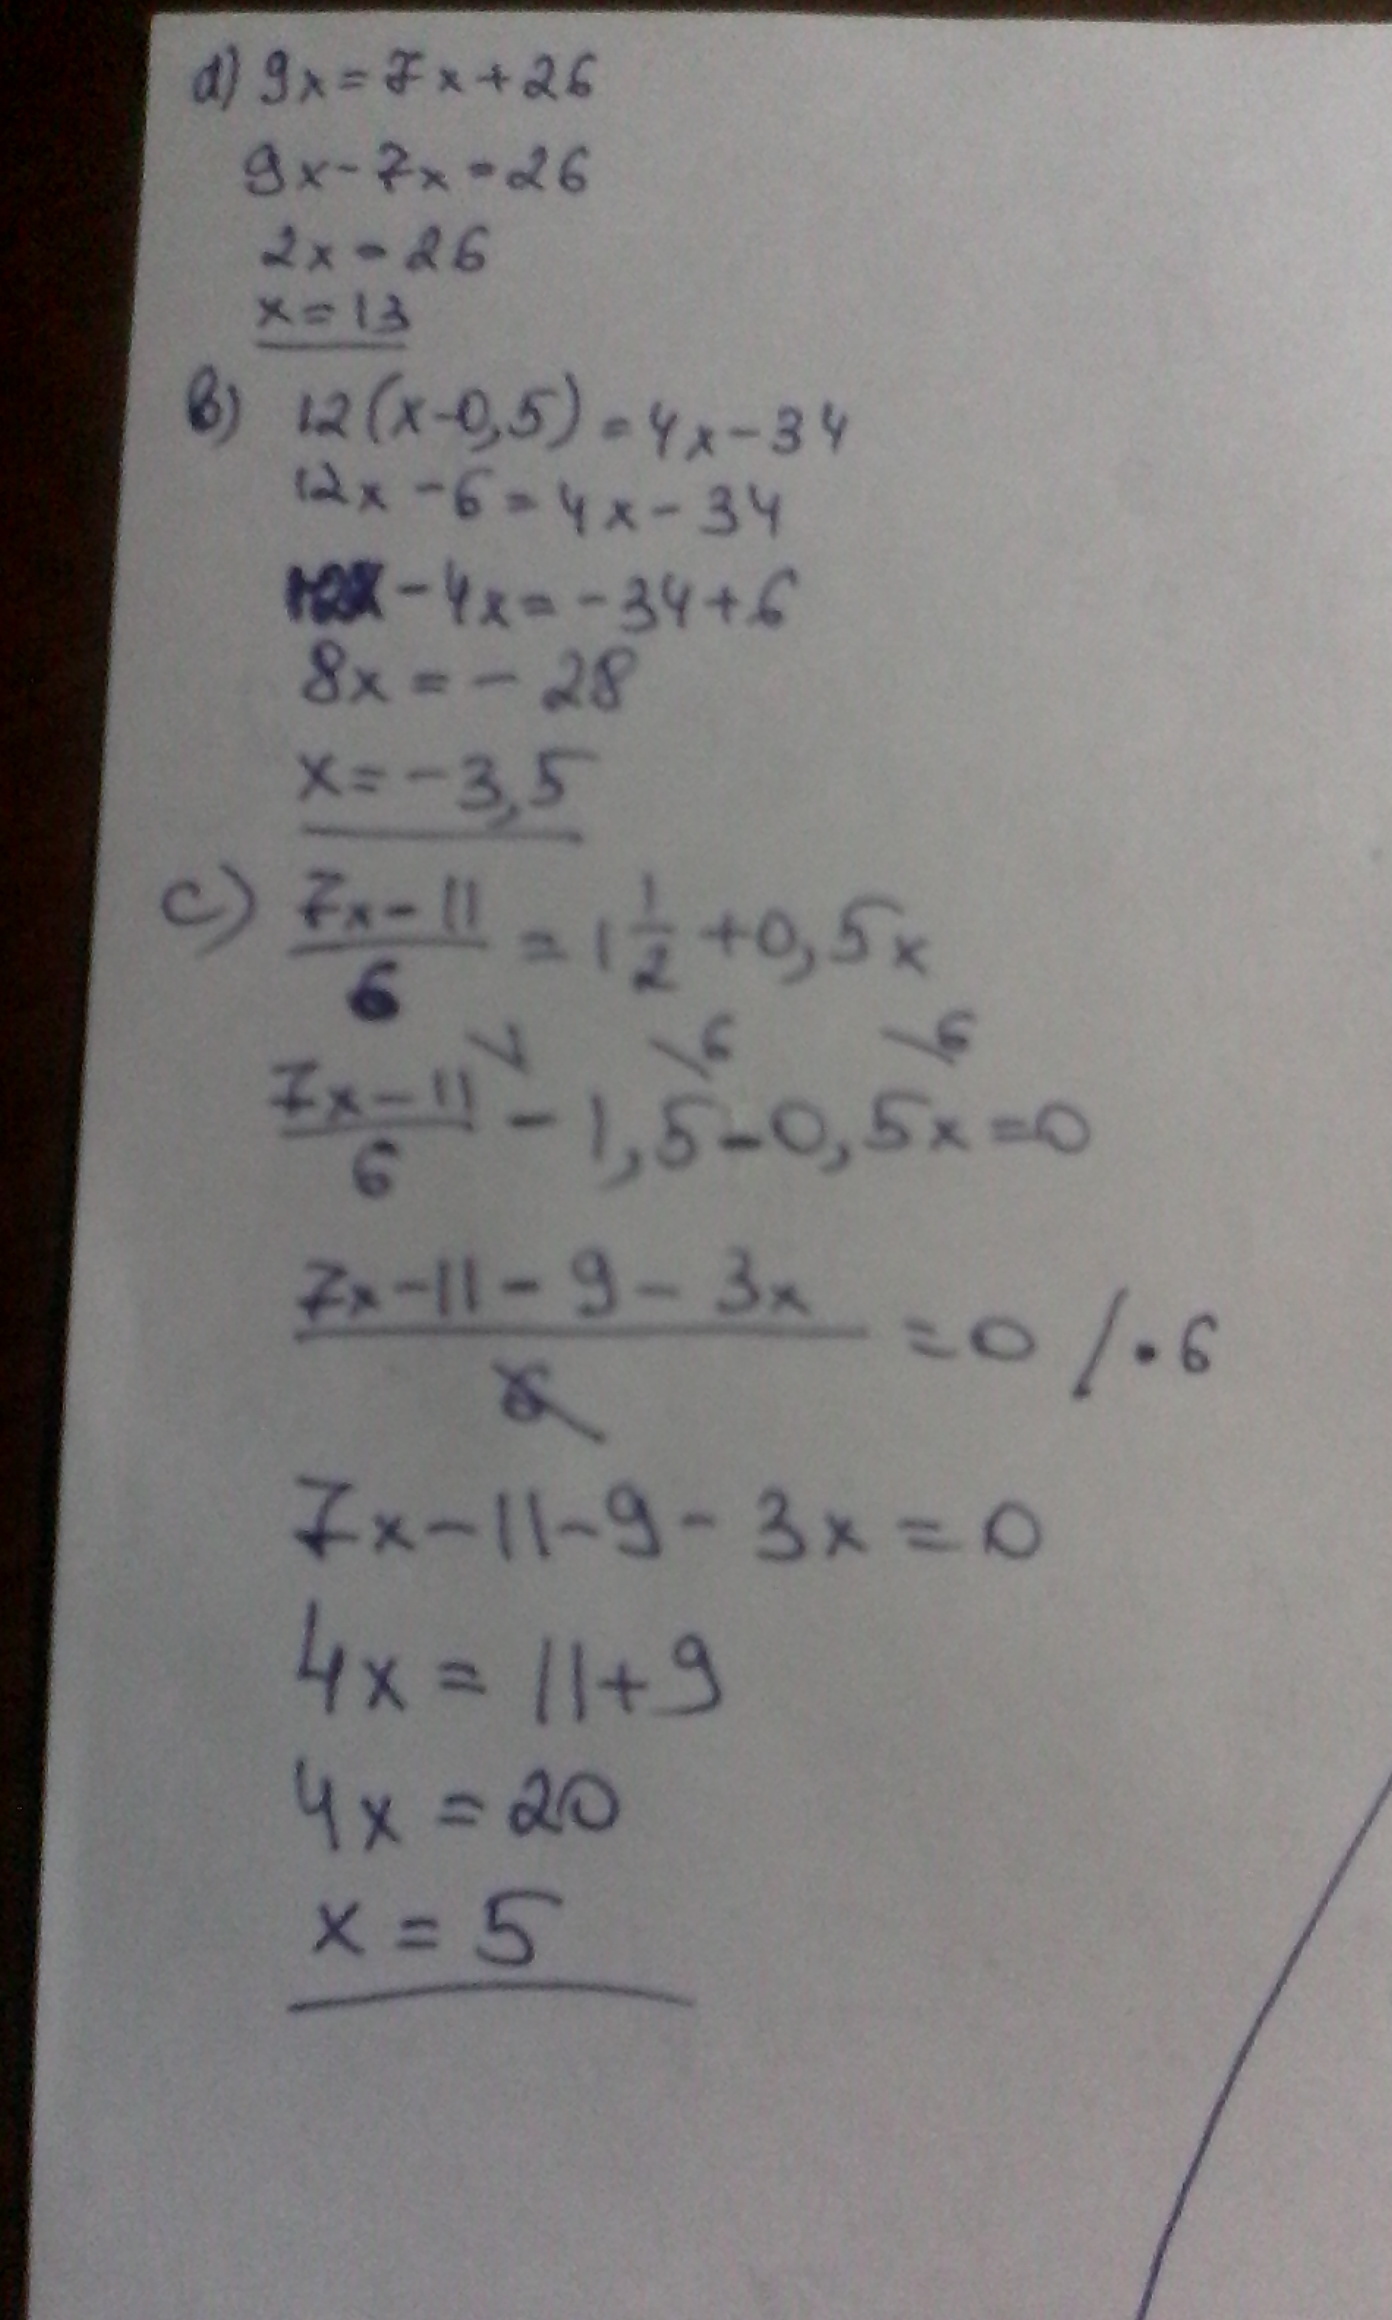 d) 9x=7x+26
9x-7x=26
2x=26
x=13
b) 12(x-0,5)=4x-34
12x-6=4x-34
12x-4x=-34+6
8x=-28
x=-3,5
c) \frac{7x-11}{6}=1\frac{1}{2}+0,5x
\frac{7x-11}{6}^{\1}-1,5^{\6}-0,5x^{\6}=0
\frac{7x-11-9-3x}{6}=0 /·6
7x-11-9-3x=0
4x=11+9
4x=20
x=5